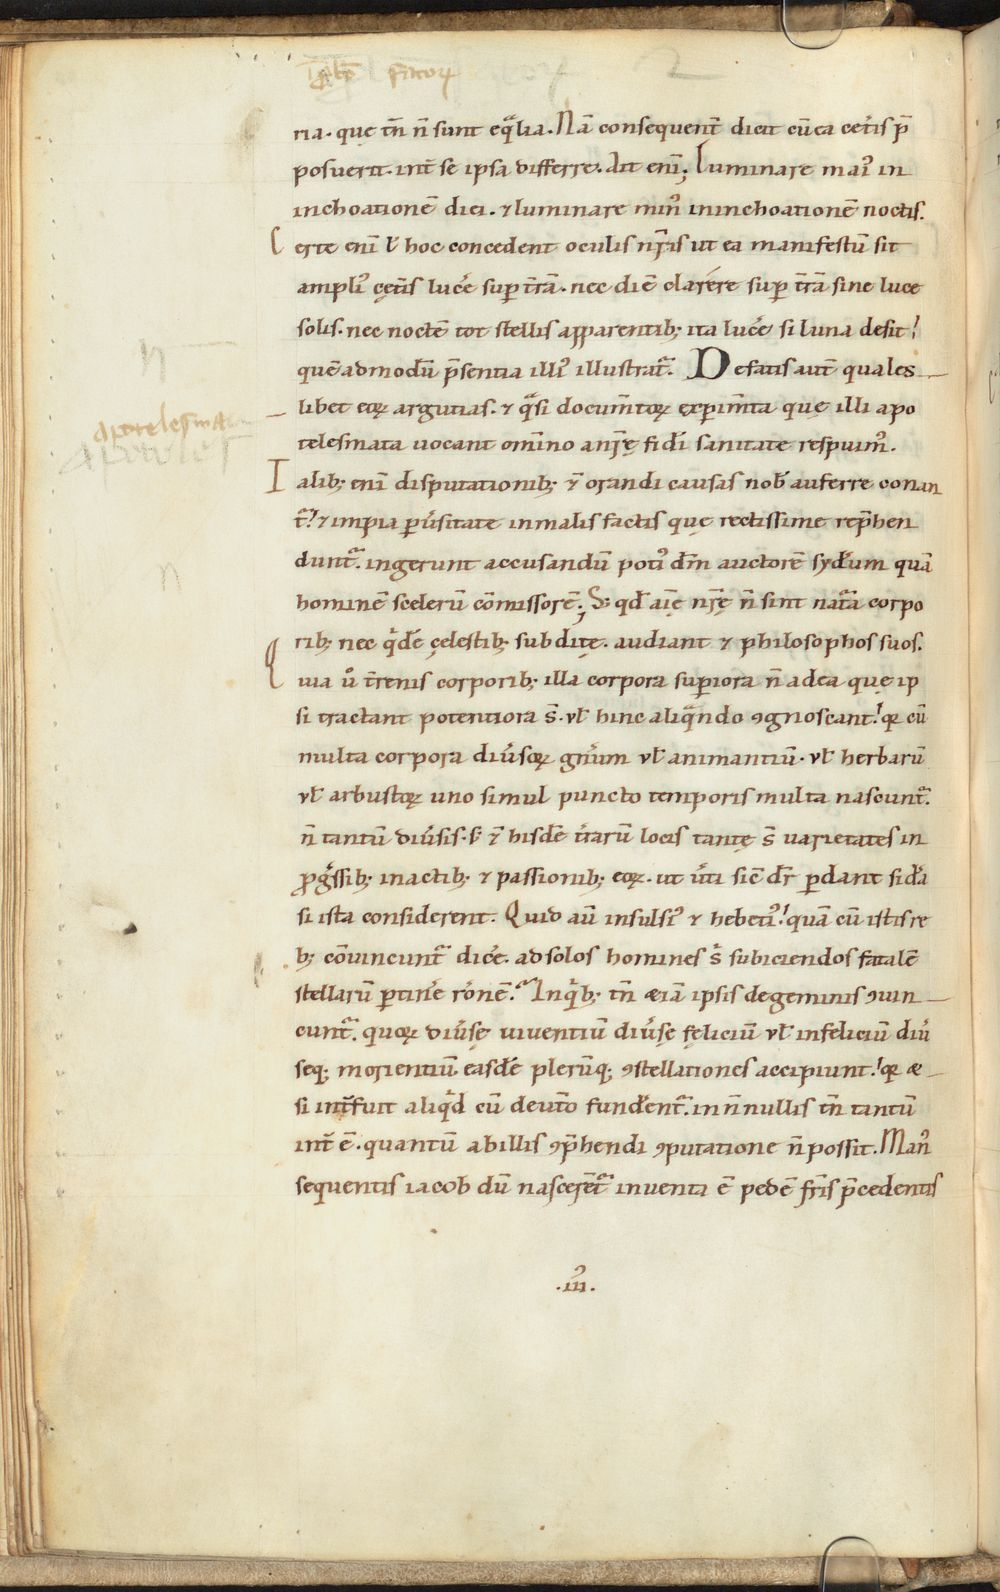 ria. quę tn̄ n̄ sunt eq̄lia. Nā consequent̄ dicit cū ea cet̄is p̄
posuerit. int̄ se ipsa differre. Ait eni᷑; Luminare mai᷒ in
inchoationē diei. ⁊ luminare min᷒ in inchoationē noctis.
Certe eni᷑ ł hoc concedent oculis nr̄is ut ea manifestū sit
ampli᷒ cęt̄is lucē sup t̄rā. nec diē clarére sup t̄rā sine luce
solis. nec noctē tot stellis apparentib; ita lucē si luna desit!
quē admodū p̄sentia illi᷒ illustrat᷑. De fatis aut̄ quales
libet eoꝝ argutias. ⁊ q̄si docum̄toꝝ experim̄ta quę illi apo
telesmata uocant om̄ino an̄r̄ę fidei sanitate respuim᷒.
Talib; eni᷑ disputationib; ⁊ orandi causas nob̄ auferre conan
t᷑! ⁊ impia puersitate in malis factis quę rectissime rep̄hen
dunt᷑. ingerunt accusandū poti᷒ dm̄ auctorē syderum quā
hominē scelerū cōmissorē; S; qd̄ aīę nr̄ę n̄ sint nat᷑a corpo
rib; nec q̇dē cęlestib; subditę. audiant ⁊ philosophos suos.
Quia ů t̄renis corporib; illa corpora superiora n̄ ad ea quę ip
si tractant potentiora s̄. vł hinc aliq̄ndo ꝯgnoscant! qꝛ cū
multa corpora diu̾soꝝ gn̄um vł animantiū. vł herbarū
vł arbustoꝝ uno simul puncto temporis multa nascunt᷑.
n̄ tantū diu̾sis. s; ⁊ hisdē t̄rarū locis tantę s̄ uarietates in
ꝓg̾ssib; in actib; ⁊ passionib; eoꝝ. ut u̾ti sic̄ dr̄ perdant sid̾a
si ista considerent. Quid aū insulsi᷒ ⁊ hebeti᷒! quā cū istis re
b; cōuincunt᷑ dicē. ad solos homines s̾ subiciendos fatalē
stellarū ptinē rōnē. In q̇b; tn̄ etiā ipsis de geminis ꝯuin
cunt᷑. quoꝝ diu̾sę uiuentiū diu̾sę fęliciū vł infeliciū diu̾
seq; morientiū easdē plerūq; ꝯstellationes accipiunt! qꝛ &
si int̄fuit aliq̇d cū de ut̄o fundent᷑. in n̄nullis tn̄ tantū
int̄ ē. quantū ab illis ꝯp̄hendi ꝯputatione n̄ possit. Man᷒
sequentis iacob dū nasceret᷑ inuenta ē pedē fr̄is p̄cedentis
apotelesmata
apoteles
.iii᷒.